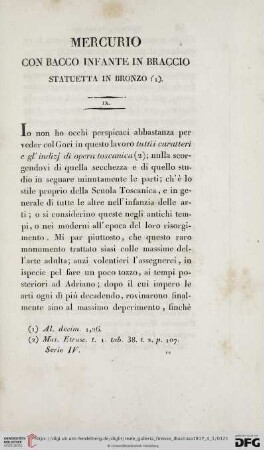 MERCURIO
CON BACCO INFANTE IN BRACCIO
STATUETTA IN BRONZO (1).
IX.
Io non ho occhi perspicaci abbastanza per
veder col Gori in questo lavoro tutti i caratteri
e gl' indizj di opera toscanica (2); nulla scor-
gendovi di quella secchezza e di quello stu-
dio in segnare minutamente le parti; ch'è lo
stile proprio della Scuola Toscanica, e in ge-
nerale di tutte le altre nell'infanzia delle ar-
ti; o si considerino queste negli antichi tem-
pi, o nei moderni all'epoca del loro risorgi-
mento. Mi par piuttosto, che questo raro
monumento trattato siasi colle massime del-
l'arte adulta; anzi volentieri l'assegnerei, in
ispecie pel fare un poco tozzo, ai tempi po-
steriori ad Adriano; dopo il cui impero le
arti ogni dì più decadendo, rovinarono final-
mente sino al massimo deperimento, finchè
(1) Al. decim. 1,26.
(2) Mus. Etrusc. t. 1. tab. 38. t. 2, p. 107.
Serie IV.
UNIVERSITÄTS-
BIBLIOTHEK
HEIDELBERG
DFG